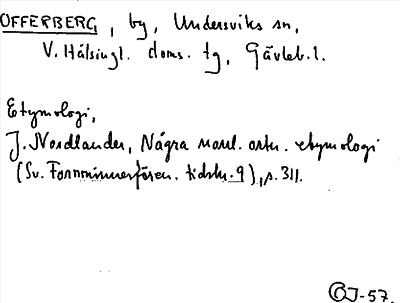 OFFERBERG, by, Undersviks sn,
V. Hälsingl. doms. tg, Gävleb. l.
Etymologi,
J. Nordlander, Några norrl. ortn. etymologi
(Sv. Fornminnesfören. tidskr. 9), s. 311.
J-57.